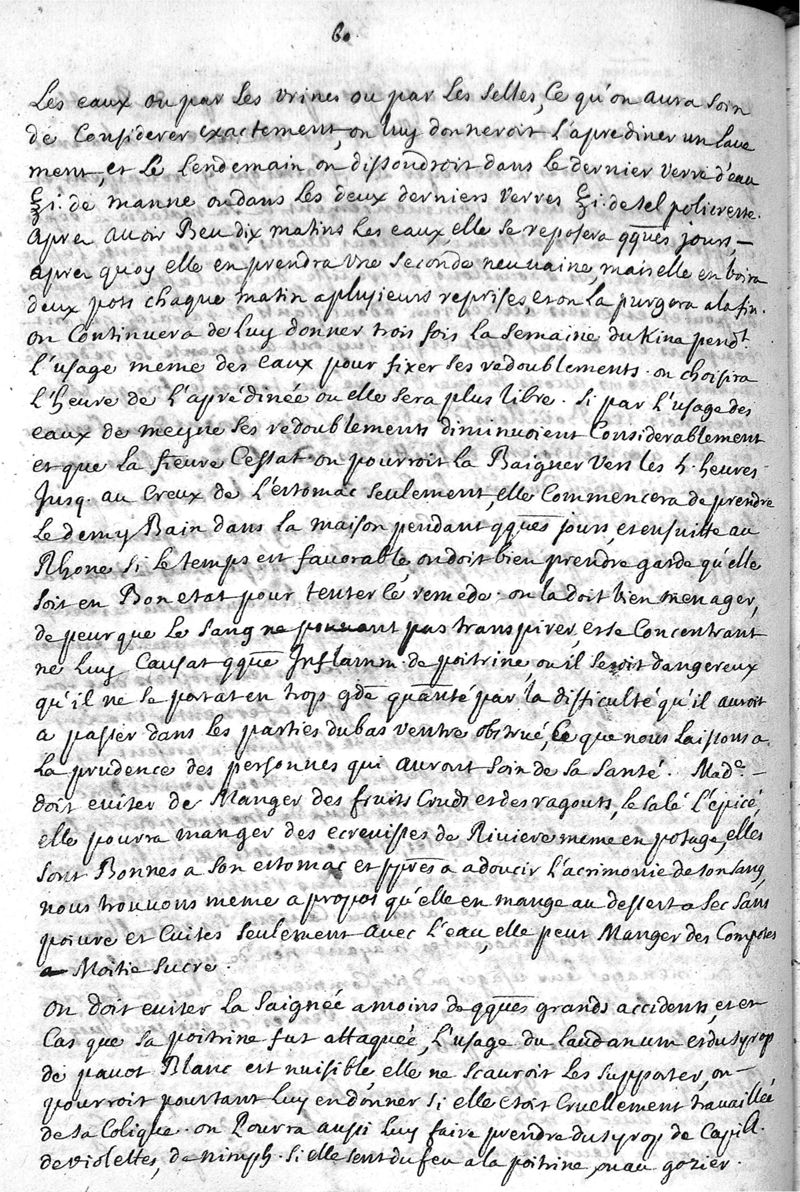 60.
Les eaux ou par les vrines ou par les selles, ce qu'on aura soin
de Considerer exactement, on luy donneroit l'aprediner un lave
ment, et le lendemain on dissoudroit dans le dernier verre d'eau
℥i. de manne ou dans les deux derniers verres ℥i. de sel policreste.
apres avoir Beu dix matins les eaux, elle se reposera qques jours, –
apres quoy elle en prendra une seconde neuvaine, mais elle en boira
deux pots chaque matin a plusieurs reprises, et on la purgera a la fin.
on Continuera de luy donner trois fois la semaine du Kina pendt
l'usage meme des eaux pour fixer ses redoublements. on choisira
l'heure de l'aprédinée ou elle sera plus libre. si par l'usage des
eaux de meyne ses redoublements diminuoient Considerablement
et que la fievre Cessat. on pourroit la Baigner vers les 4. heures
Jusq. au Creux de l'estomac seulement, elle Commencera de prendre
le demy Bain dans la maison pendant qques jours, et ensuitte au
Rhone si le temps est favorable, on doit bien prendre garde qu'elle
soit en Bon etat pour tenter ce remede. on la doit bien menager,
de peur que le sang ne pouvant pas transpirer, et se Concentrant
ne luy Causat qque Inflamm. de poitrine, ou il seroit dangereux
qu'il ne se portat en trop gde quanté par la difficulté qu'il auroit
a passer dans les parties du bas ventre obstrué, Ce que nous laissons a
la prudence des personnes qui auront soin de sa santé. Made. –
doit eviter de Manger des fruits Crudi et des ragouts, le salé l'epicé,
elle pourra manger des ecrevisses de Riviere meme en potage, elles
sont Bonnes a son estomac et ppres a adoucir l'acrimonie de son sang,
nous trouvons meme a propos qu'elle en mange au dessert a sec sans
poivre et Cuites seulement avec l'eau, elle peut Manger des Compotes
a Moitie sucre.
On doit eviter la saignée a moins de qques grands accidents, et en
Cas que sa poitrine fut attaquée, l'usage du laudanum et du syrop
de pavot Blanc est nuisible elle ne scauroit les supporter, on –
pourroit pourtant luy en donner si elle etoit Cruellement travaillée
de sa Colique. on Pourra aussi luy faire prendre du syrop de Capill.
de violettes, de nimph. si elle sent du feu a la poitrine, ou au gozier.